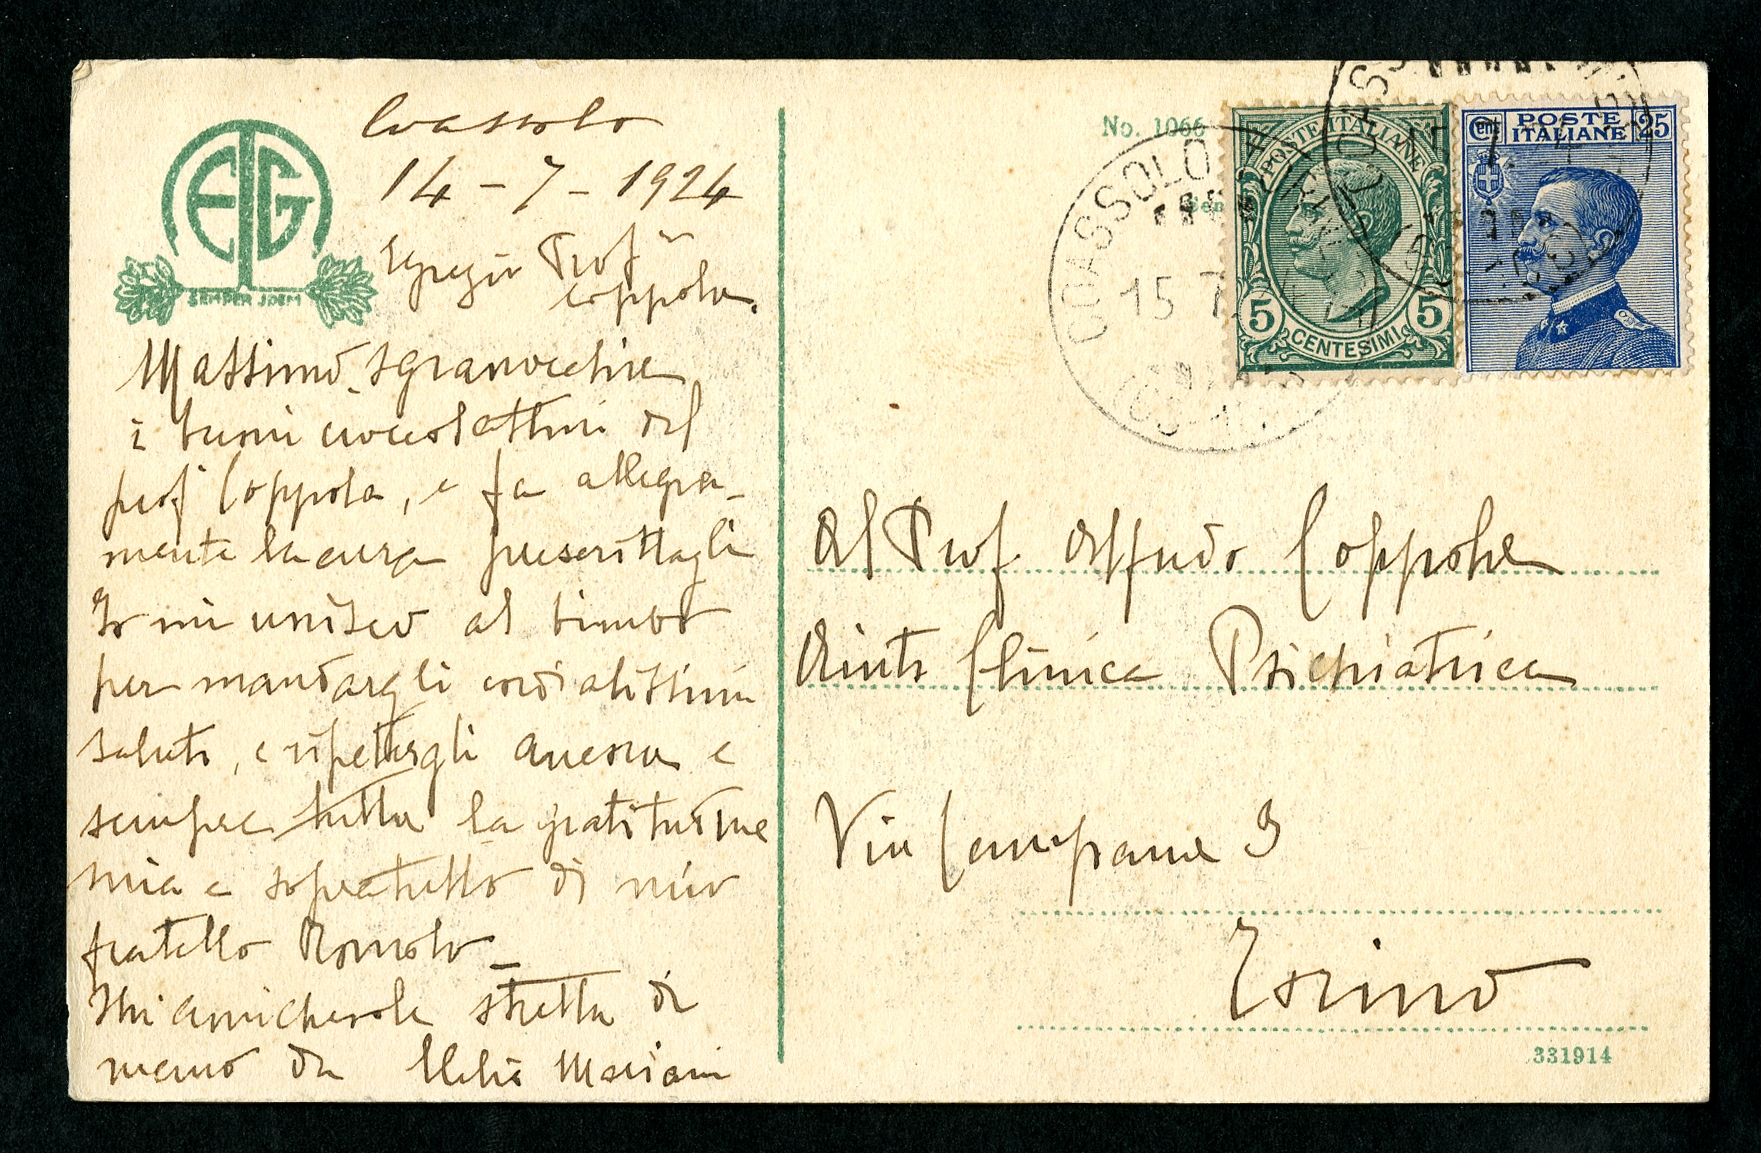 ETG
SEMPER IDEM
Coassolo
14-7-1924
Egregio Prof
Coppola.
Massimo sgranocchia
i buoni cioccolattini del
prof Coppola, e fa allegra-
mente la cura prescrittagli
Io mi unisco al bimbo
per mandargli cordialissimi
saluti, e ripetergli ancora e
sempre tutta la gratitudine
mia e sopratutto di mio
fratello Romolo_
Un'amichevole stretta di
mano da Mariani
No. 1066
COASSOLO
15 7
POSTE ITALIANE
5 5
CENTESIMI
Cent POSTE 25
ITALIANE
Al Prof. Coppola
Clinica Psichiatrica
Via Campana 9
Torino
331914